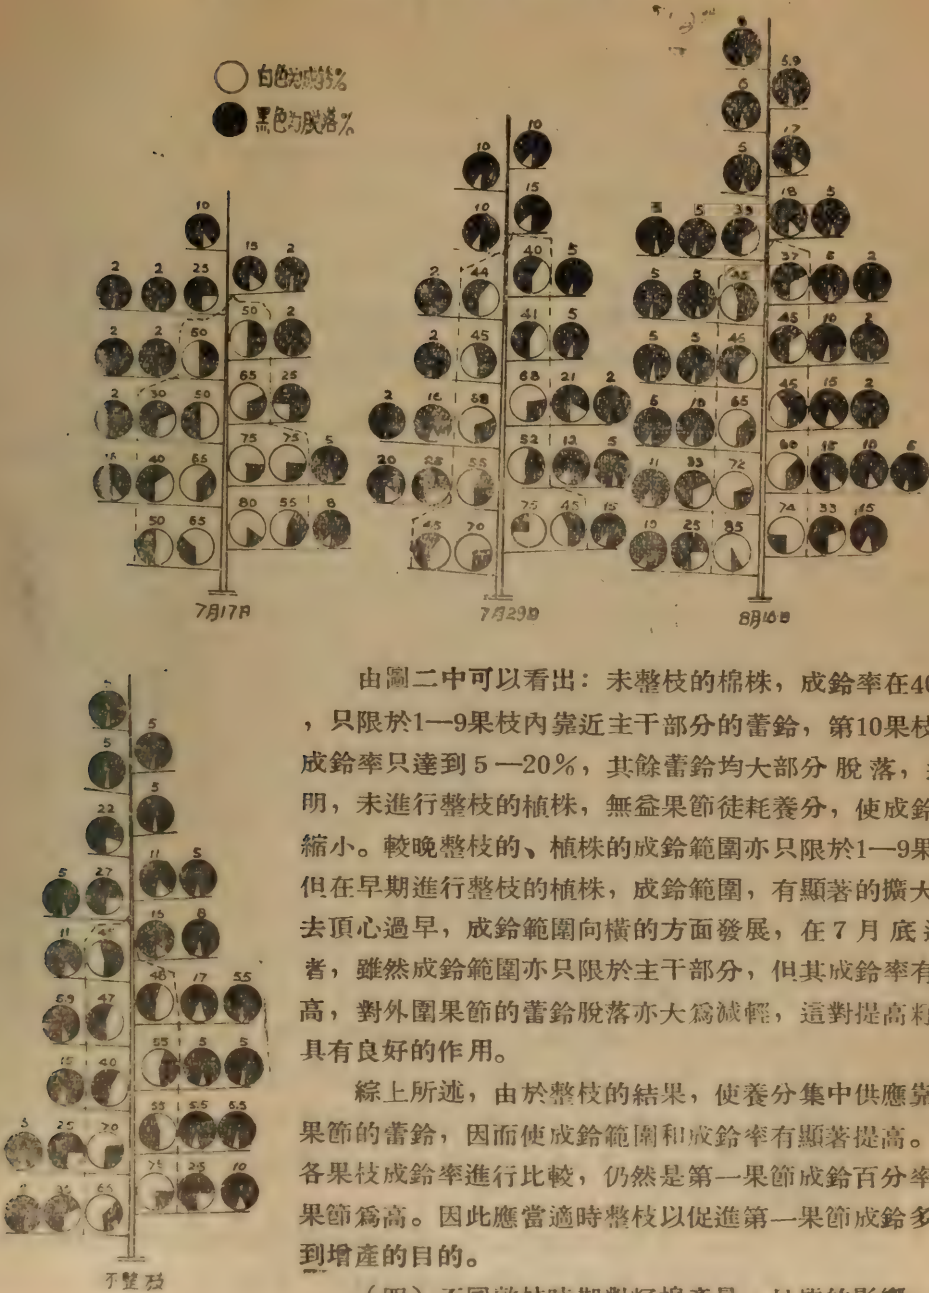 白色为成鈴%
黑色为脱落%
10
15 2
2 2 25
50 2
2 2 50
65 25
2 30 50
75 75 5
15 40 65
80 55 8
50 65
7月17日
10
10
15
10
40 5
2 44
41 5
2 45
68 21 2
2 16 68
52 12 5
20 25 55
75 45 15
45 70
7月29日
5.9
6
17
5
18 5
5 5 39
37 6 2
5 5 45
45 10 2
5 5 46
45 15 2
6 10 65
60 15 10 6
11 33 72
74 33 15
10 25 85
5
5
5
22
11 5
5 27
15 8
11 45
46 17 5.5
5.9 47
55 5 5
15 40
55 5.5 6.5
5 25 70
75 25 10
35 65
不整枝
由圖二中可以看出：未整枝的棉株，成鈴率在40
，只限於1—9果枝內靠近主干部分的蕾鈴，第10果枝
成鈴率只達到5—20%，其餘蕾鈴均大部分脫落，
明，未進行整枝的植株，無益果節徒耗養分，使成鈴
縮小。較晚整枝的、植株的成鈴範圍亦只限於1—9果
但在早期進行整枝的植株，成鈴範圍，有顯著的擴大
去頂心過早，成鈴範圍向橫的方面發展，在7月底
者，雖然成鈴範圍亦只限於主干部分，但其成鈴率有
高，對外圍果節的蕾鈴脫落亦大爲減輕，這對提高
具有良好的作用。
綜上所述，由於整枝的結果，使養分集中供應靠
果節的蕾鈴，因而使成鈴範圍和成鈴率有顯著提高。
各果枝成鈴率進行比較，仍然是第一果節成鈴百分率
果節爲高。因此應當適時整枝以促進第一果節成鈴多
到增產的目的。